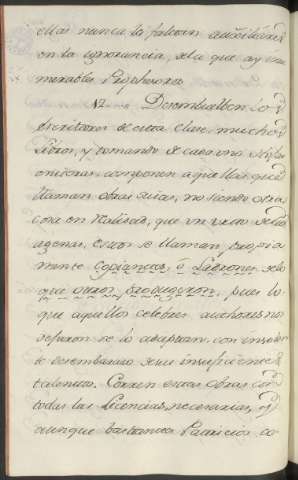 ellas nunca la faltan auxiliares
en la ignorancia, de la que ay inu
merables Profesores
Desembuelben los
Escritores de esta clase muchos
Libros, y tomando de cada uno
componen aquellas que
llaman obras suyas, no siendo otra
cosa en realidad, que un de las
agenas. Estos se llaman propia
mente Copiantes, ô Ladrones de lo
que otros trabajaron, pues lo
que aquellos celebres authores no
dejaron de lo adaptan con insolen
te desembarazo a sus insuficientes
talentos. Corren estas obras con
todas las Licencias necesarias, y
aunque bastantes Patricios co